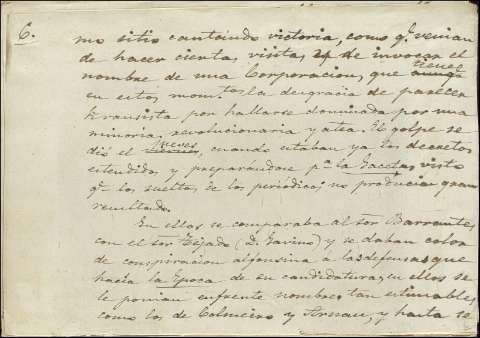 6.
mo sitio cantando victoria, como qe. venian
de hacer ciertas visitas y de invocar el
nombre de una Corporacion, que tiene
en estos momtos. la desgracia de parecer
krausista por hallarse dominada por una
minoria revolucionaria y atea. El golpe se
dió el jueves, cuando estaban ya los decretos
estendidos y preparándose pa. la Gaceta, visto
qe. los sueltos de los periódicos no producian gran
resultado.
En ellos se comparaba al Sor. Barrantes
con el Sor. Tejado (D. Gavino) y se daban color
de conspiracion alfonsina á las defensas que
hacía la Época de su candidatura; en ellos se
le ponian enfrente nombres tan estimables
como los de Colmeiro y Arnau, y hasta se